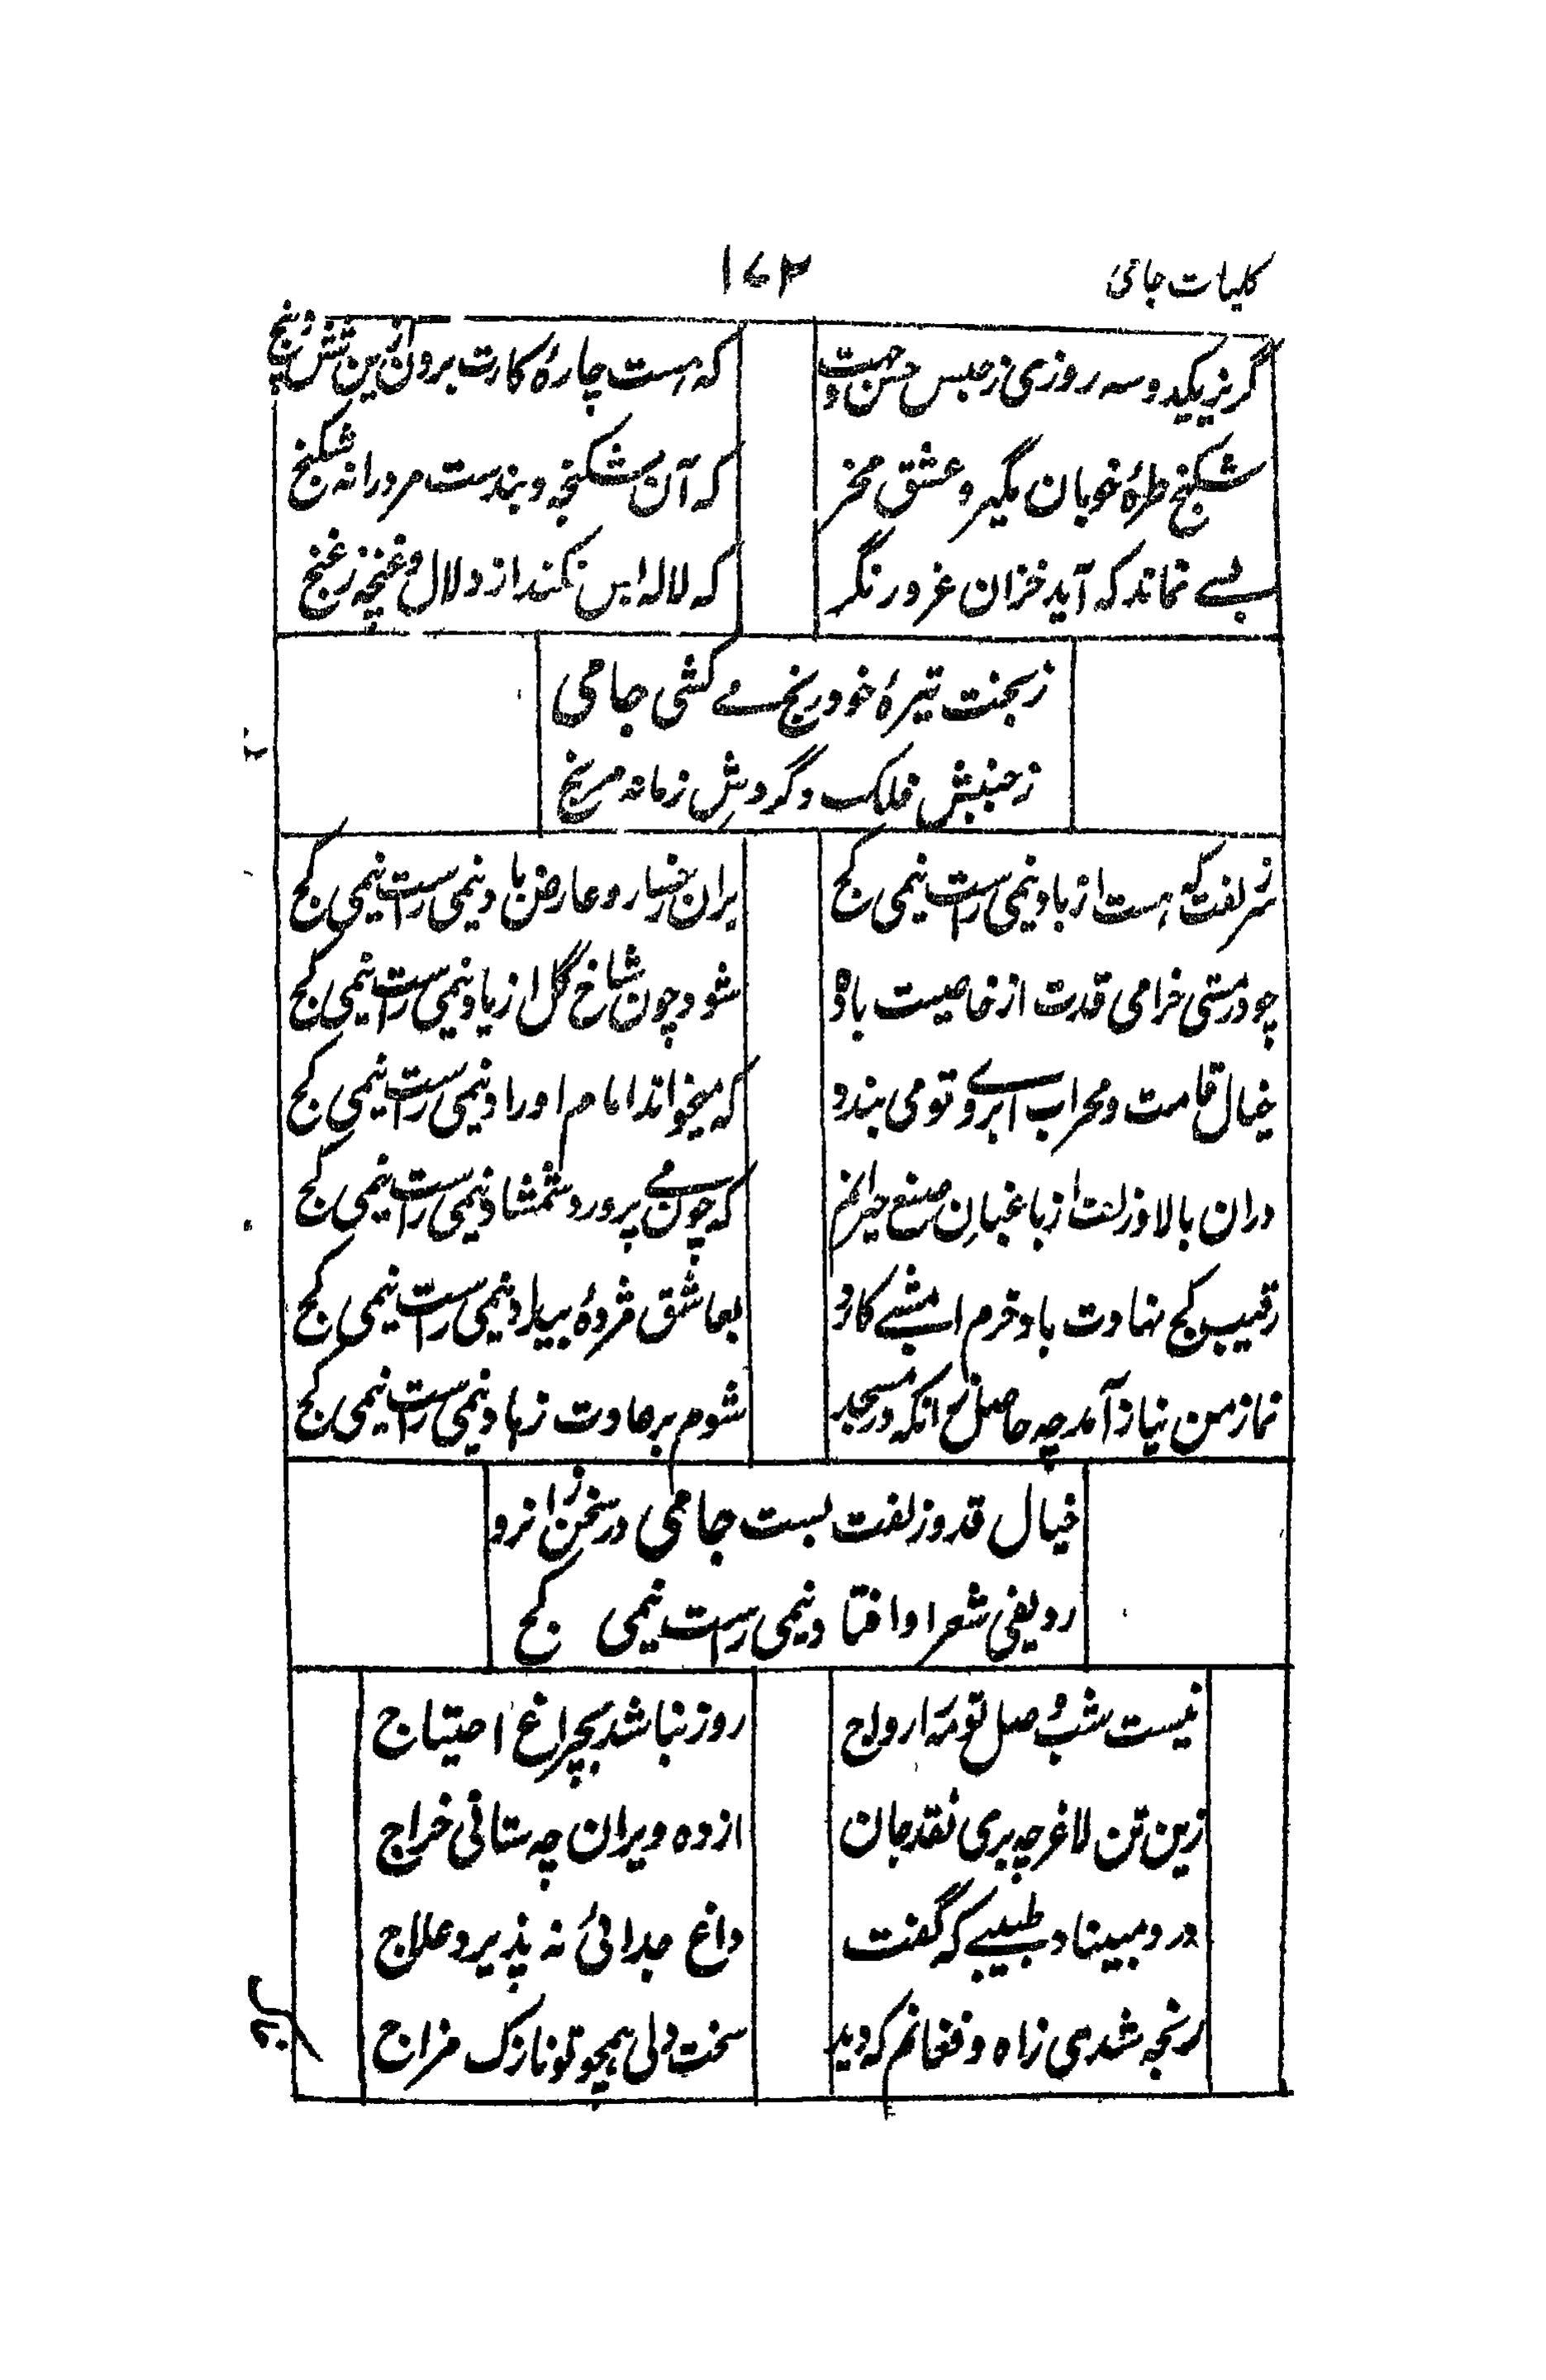 کلیات جامی ۱۷۲
گریز یکدو سه روزی ز حبس حس و جهت که هست چارهٔ کارت برون ازین شش و پنج
شکنج طرهٔ خوبان مگیر و عشق مخر که آن شکنجه و بندست مرد را نه شکنج
بسے نماند که آید خزان غرور نگر که لاله ایس نکند از دلال و غنچه ز غنج
ز بخت تیرهٔ خود رنج مے کشی جامی
ز جنبش فلک و گردش زمانه مرنج
سر زلفت که هست از باد نیمی راست نیمی کج بران رخسار و عارض باد نیمی راست نیمی کج
چو در مستی خرامی قدت از خاصیت باده شود چون شاخ گل از باد نیمی راست نیمی کج
خیال قامت و محراب ابروے تو می بندد که میخواند امام اوراد نیمی راست نیمی کج
دران بالا و زلفت از باغبانِ صنع حیرانم که چون مے پرورد شمشاد نیمی راست نیمی کج
رقیب کج نهادت باد خرم امشبے کارد بعاشق مژدهٔ بیداد نیمی راست نیمی کج
نماز من نیاز آمد چه حاصل ز انکه در مسجد شوم بر عادت زهاد نیمی راست نیمی کج
خیال قد و زلفت بست جامی در سخن زانرو
ردیفی شعر او افتاد نیمی راست نیمی کج
نیست شب وصل تو مه را رواج روز نباشد بچراغ احتیاج
زین تن لاغر چه بری نقد جان از ده ویران چه ستانی خراج
درد مبیناد طبیبے که گفت داغ جدائی نه پذیرد علاج
رنجه شدی ز آه و فغانم که دید سخت دلی همچو تو نازک مزاج